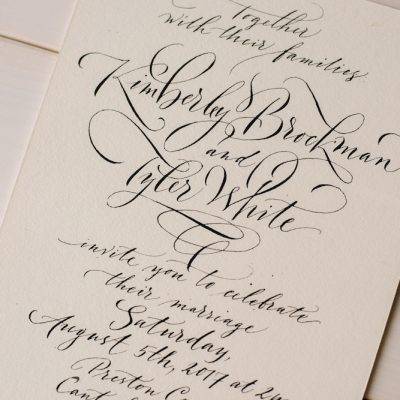 Together
with their families
Kimberley Brockman
and
Tyler White
invite you to celebrate
their marriage
Saturday,
August 5th, 2017 at
Preston